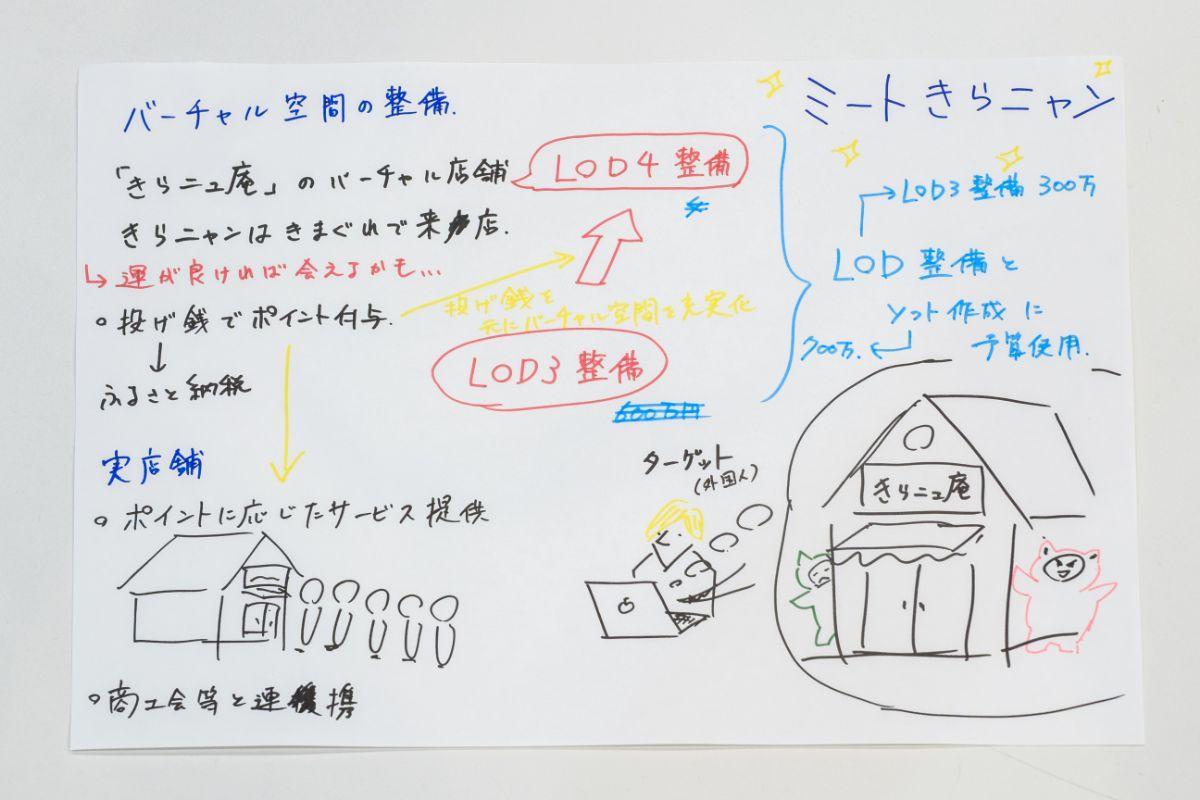 バーチャル空間の整備.
「きらニュ庵」のバーチャル店舗
きらニャンはきまぐれで来店.
↳運が良ければ会えるかも…
○投げ銭でポイント付与.
↓
ふるさと納税
LOD4整備
投げ銭を
元にバーチャル空間を充実化
LOD3整備
600万円
実店舗
○ポイントに応じたサービス提供
○商工会等と連携
ミートきらニャン
→LOD3整備 300万
LOD整備と
ソフト作成に
700万.
予算使用.
ターゲット
(外国人)
きらニュ庵